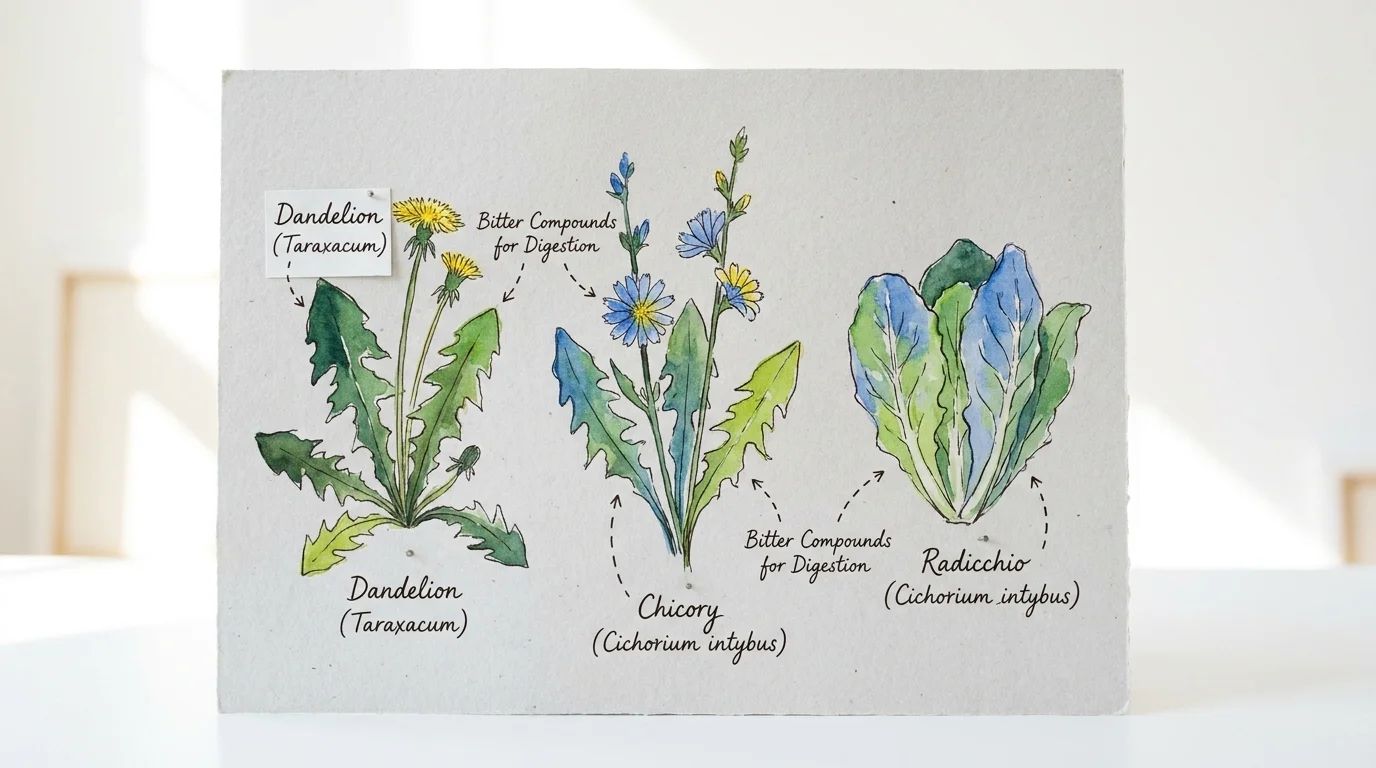 Dandelion
(Taraxacum)
Bitter Compounds
for Digestion
Dandelion
(Taraxacum)
Chicory
(Cichorium intybus)
Bitter Compounds
for Digestion
Radicchio
(Cichorium intybus)